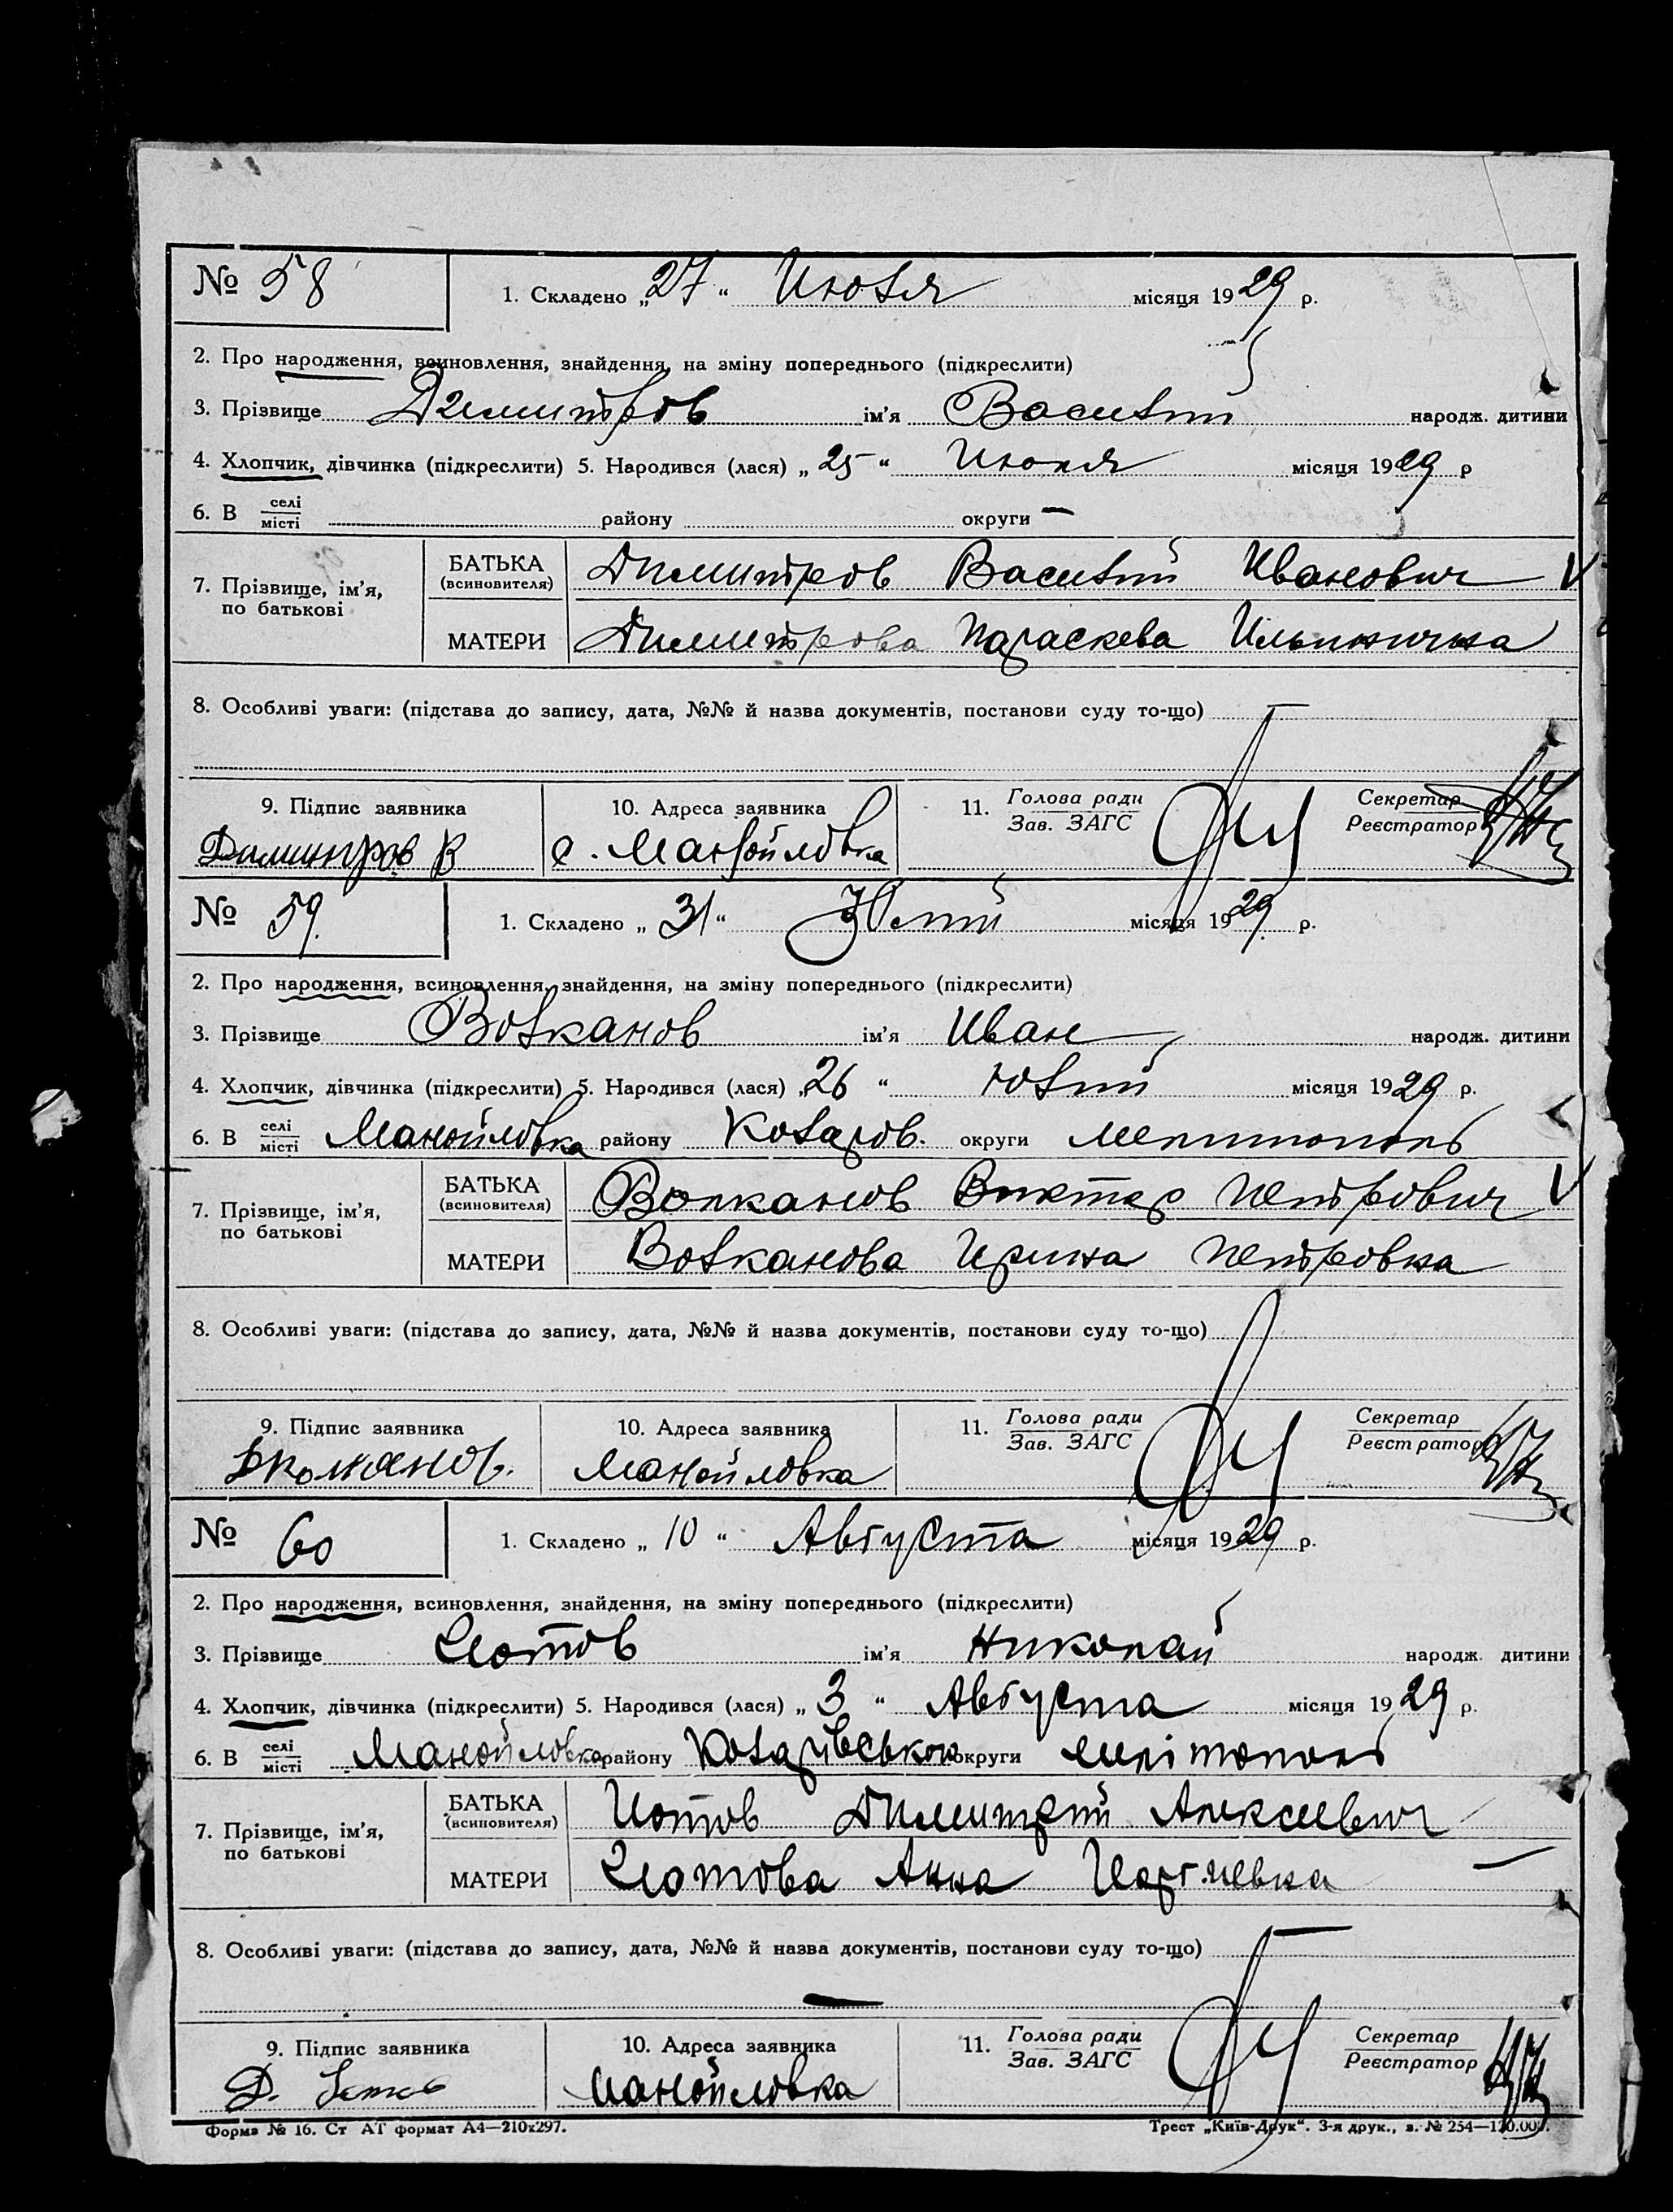 № 58 1. Складено „27“ Июля місяця 1929 р.
2. Про народження, всиновлення, знайдення, на зміну попереднього (підкреслити)
3. Прізвище Димитров ім'я Василий народж. дитини
4. Хлопчик, дівчинка (підкреслити) 5. Народився (лася) „25“ Июля місяця 1929 р
6. В селі місті району округи —
7. Прізвище, ім'я, по батькові БАТЬКА (всиновителя) Димитров Василий Иванович V
МАТЕРИ Димитрова Параскева Ильинична
8. Особливі уваги: (підстава до запису, дата, №№ й назва документів, постанови суду то-що)
9. Підпис заявника 10. Адреса заявника 11. Голова ради Зав. ЗАГС Секретар Реєстратор
Димитров В с. Манойловка
№ 59. 1. Складено „31“ місяця 1929 р.
2. Про народження, всиновлення, знайдення, на зміну попереднього (підкреслити)
3. Прізвище Волканов ім'я Иван народж. дитини
4. Хлопчик, дівчинка (підкреслити) 5. Народився (лася) „26“ Юлий місяця 1929 р.
6. В селі місті Манойловка району Коларов. округи Мелитополь
7. Прізвище, ім'я, по батькові БАТЬКА (всиновителя) Волканов Виктор Петрович V
МАТЕРИ Волканова Ирина Петровна
8. Особливі уваги: (підстава до запису, дата, №№ й назва документів, постанови суду то-що)
9. Підпис заявника 10. Адреса заявника 11. Голова ради Зав. ЗАГС Секретар Реєстратор
Манойловка
№ 60 1. Складено „10“ Августа місяця 1929 р.
2. Про народження, всиновлення, знайдення, на зміну попереднього (підкреслити)
3. Прізвище Иотов ім'я Николай народж. дитини
4. Хлопчик, дівчинка (підкреслити) 5. Народився (лася) „3“ Августа місяця 1929 р.
6. В селі місті Манойловка району Коларівською округи Мелітополь
7. Прізвище, ім'я, по батькові БАТЬКА (всиновителя) Иотов Димитрий Алексеевич
МАТЕРИ Иотова Анна —
8. Особливі уваги: (підстава до запису, дата, №№ й назва документів, постанови суду то-що)
—
9. Підпис заявника 10. Адреса заявника 11. Голова ради Зав. ЗАГС Секретар Реєстратор
Д. Манойловка
Форма № 16. Ст АТ формат А4—210х297. Трест „Київ-Друк“. 3-я друк., з. № 254—120.000.